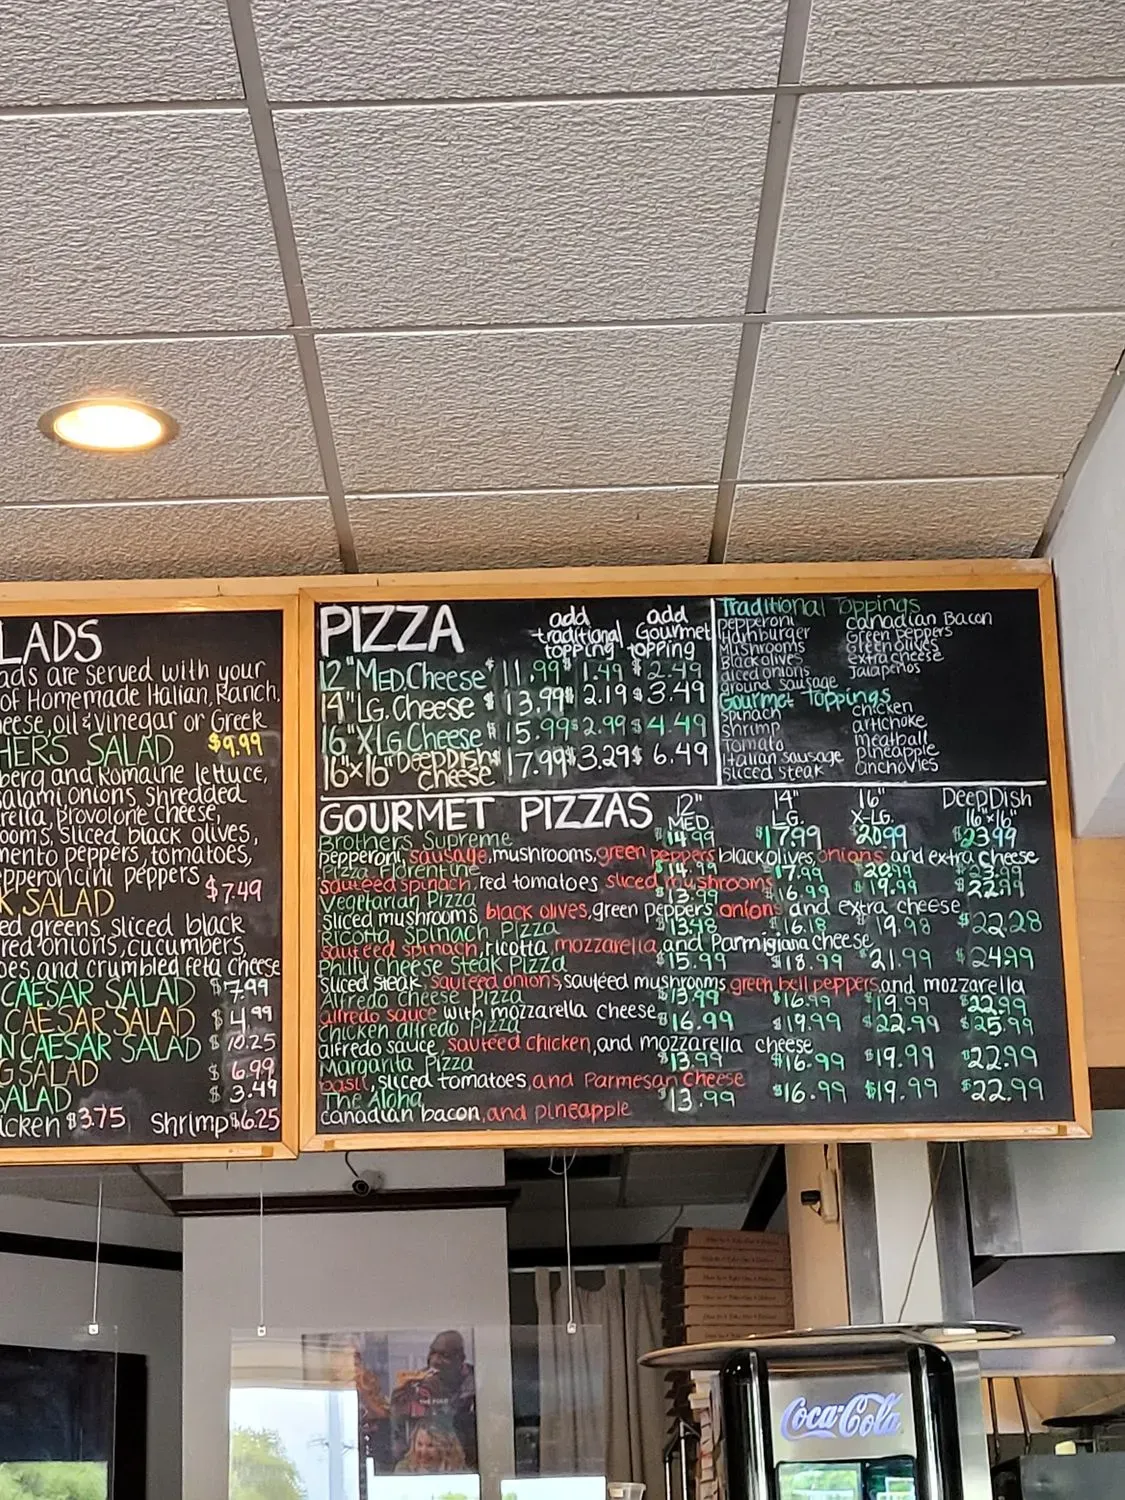 LADS
ads are served with your
of Homemade Italian, Ranch,
heese, oil & vinegar or Greek
HERS SALAD $9.99
berg and Romaine lettuce,
alami, onions, shredded
rella, provolone cheese,
ooms, sliced black olives,
mento peppers, tomatoes,
epperoncini peppers $7.49
K SALAD
ed greens, sliced black
red onions, cucumbers,
oes, and crumbled feta cheese
CAESAR SALAD $7.99
CAESAR SALAD $4.99
N CAESAR SALAD $10.25
G SALAD $6.99
SALAD $3.49
icken $3.75 Shrimp $6.25
PIZZA add traditional topping add Gourmet topping
12" MED. Cheese $11.99 $1.49 $2.49
14" LG. Cheese $13.99 $2.19 $3.49
16" XLG Cheese $15.99 $2.99 $4.49
16"x16" Deep Dish cheese $17.99 $3.29 $6.49
Traditional Toppings
Pepperoni Canadian Bacon
Hamburger Green Peppers
Mushrooms Green olives
Black olives extra cheese
diced onions Jalapeños
ground sausage
Gourmet Toppings
Spinach chicken
shrimp artichoke
Tomato meatball
Italian sausage pineapple
sliced steak anchovies
GOURMET PIZZAS 12" MED. 14" LG. 16" X-LG. Deep Dish 16"x16"
Brothers Supreme $14.99 $17.99 $20.99 $23.99
pepperoni, sausage, mushrooms, green peppers black olives, onions, and extra cheese
Pizza Florentine $14.99 $17.99 $20.99 $23.99
sautéed spinach, red tomatoes sliced mushrooms
Vegetarian Pizza $13.99 $16.99 $19.99 $22.99
sliced mushrooms black olives, green peppers onions and extra cheese
Ricotta Spinach Pizza $13.48 $16.18 $19.98 $22.28
sautéed spinach, ricotta mozzarella, and Parmigiana cheese
Philly Cheese Steak Pizza $15.99 $18.99 $21.99 $24.99
Sliced steak, sautéed onions, sautéed mushrooms green bell peppers, and mozzarella
Alfredo Cheese Pizza $13.99 $16.99 $19.99 $22.99
alfredo sauce with mozzarella cheese
Chicken alfredo Pizza $16.99 $19.99 $22.99 $25.99
alfredo sauce, sautéed chicken, and mozzarella cheese
Margarita Pizza $13.99 $16.99 $19.99 $22.99
basil, sliced tomatoes, and Parmesan cheese
The Aloha $13.99 $16.99 $19.99 $22.99
canadian bacon, and pineapple
Coca-Cola